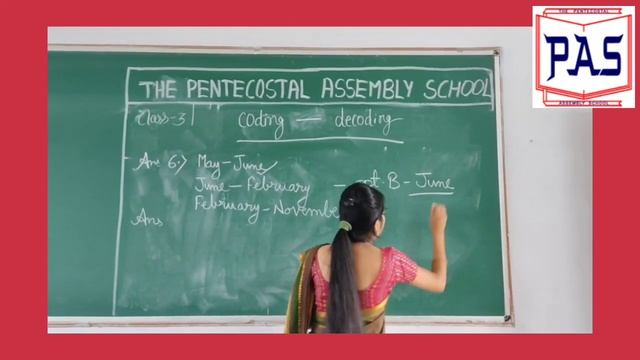 THE PENTECOSTAL
PAS
ASSEMBLY SCHOOL
THE PENTECOSTAL ASSEMBLY SCHOOL
Class-3
Coding — decoding
Ans 6:) May - June
June - February — opt. B - June
February - Novembe
Ans